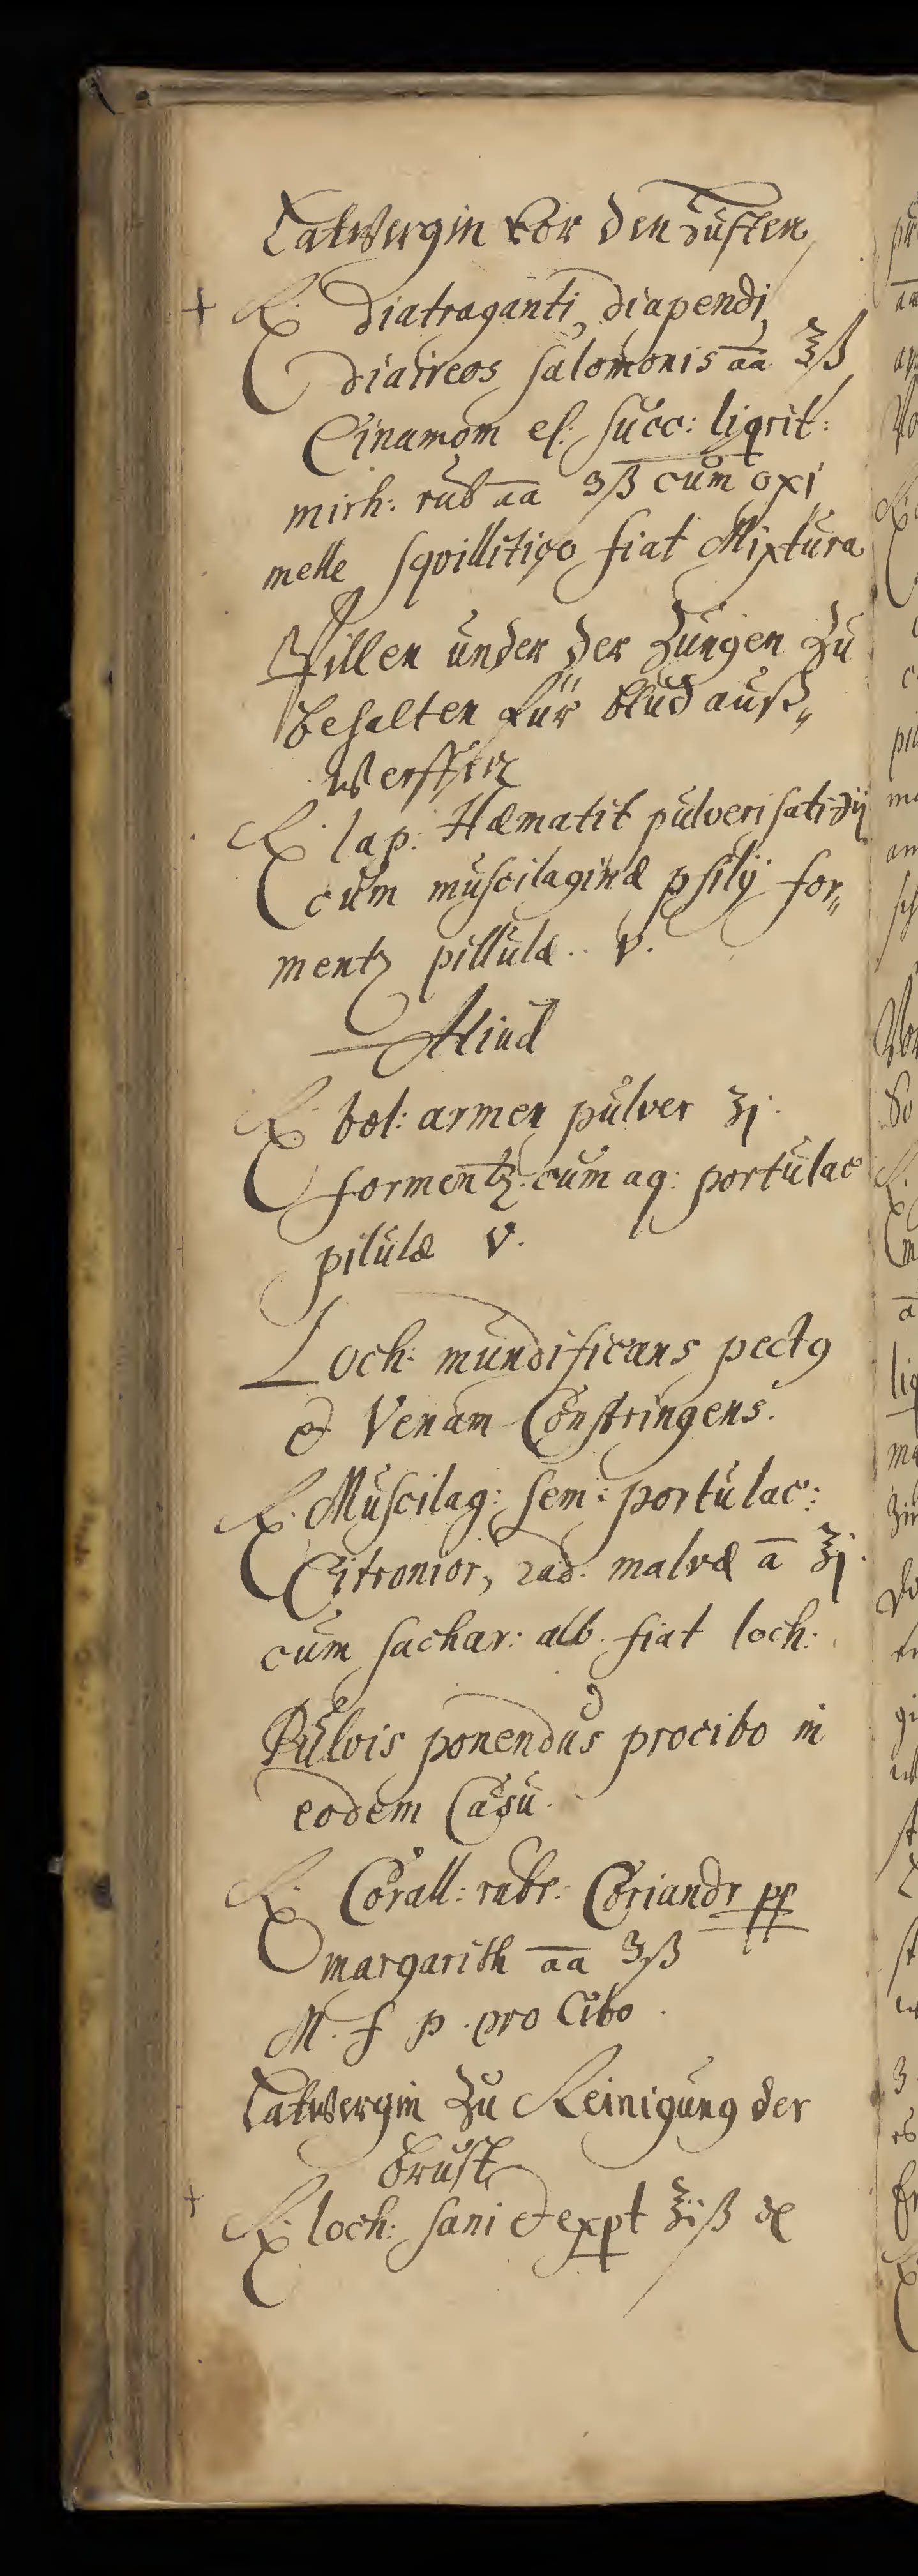 Latwergin vor den Husten
+ ℞. diatraganti, diapendi,
diaireos salomonis aa ʒß
Cinamom el: succ: liqrit:
mirh: rub aa ℈ß cum oxi
melle sqvillitico fiat Mixtura
Pillen under der Zungen zu
behalten für blud auß„
werffen
℞. lap. Hæmatit pulverisati ʒij
cum muscilaginæ psilÿ for„
mentz pillulæ .. v.
Aliud
℞. bol: armen pulver ʒj.
formentz cum aq: portulac
pilulæ v.
Loch: mundificans pectꝯ
& Venam Constringens.
℞. Muscilag: sem: portulac:
Citronior, rad. malvæ a ℥j.
cum sachar: alb. fiat loch:
Pulvis ponendus pro cibo in
eodem Casu.
℞. Corall: rubr: Coriandr pp
margarith aa ʒß
M. f p. pro Cibo.
Latwergin zu Reinigung der
brust
+ ℞. loch: sani & expt ℥iß de